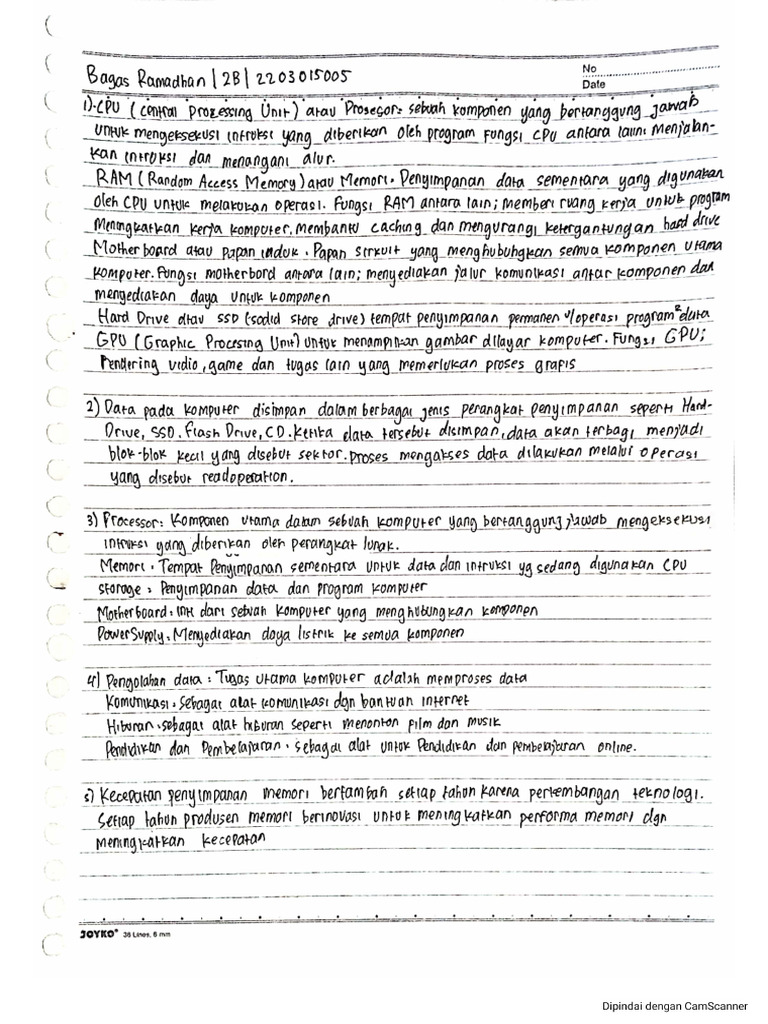 Bagas Ramadhan / 2B / 2203015005
No
Date
1). CPU (Central Prozessing Unit) atau Prosesor: sebuah komponen yang bertanggung jawab
untuk mengeksekusi intruksi yang diberikan oleh program fungsi CPU antara lain: menjalan-
kan intruksi dan menangani alur.
RAM (Random Access Memory) atau Memori. Penyimpanan data sementara yang digunakan
oleh CPU untuk melakukan operasi. Fungsi RAM antara lain; memberi ruang kerja untuk program
Meningkatkan kerja komputer, membantu caching dan mengurangi ketergantungan hard drive
Motherboard atau Papan induk. Papan sirkuit yang menghubungkan semua komponen utama
komputer. Fungsi motherbord antara lain; menyediakan jalur komunikasi antar komponen dan
mengediakan daya untuk komponen
Hard Drive atau SSD (sodid store drive) tempat penyimpanan permanen u/operasi program² data
GPU (Graphic Procesing Unit) untuk menampilkan gambar dilayar komputer. Fungsi GPU;
Rendering vidio, game dan tugas lain yang memerlukan proses grafis
2) Data pada komputer disimpan dalam berbagai jenis perangkat penyimpanan seperti Hard-
Drive, SSD. Flash Drive, CD. Ketika data tersebut disimpan, data akan terbagi menjadi
blok-blok kecil yang disebut sektor. Proses mengakses data dilakukan melalui operasi
yang disebut readoperation.
3) Processor: Komponen utama dalam sebuah komputer yang bertanggung jawab mengeksekusi
intruksi yang diberikan oleh perangkat lunak.
Memori: Tempat Penyimpanan sementara untuk data dan intruksi yg sedang digunakan CPU
storage: Penyimpanan data dan program komputer
Motherboard: inti dari sebuah komputer yang menghubungkan komponen
Power Supply: Menyediakan daya listrik ke semua komponen
4) Pengolahan data: Tugas utama komputer adalah memproses data
Komunikasi: Sebagai alat komunikasi dgn bantuan internet
Hiburan: sebagai alat hiburan seperti menonton film dan musik
Pendidikan dan Pembelajaran: sebagai alat untuk Pendidikan dan pembelajaran online.
5) Kecepatan penyimpanan memori bertambah setiap tahun karena perkembangan teknologi.
Setiap tahun produsen memori berinovasi untuk meningkatkan performa memori dgn
meningkatkan kecepatan
JOYKO 36 Lines, 8 mm
Dipindai dengan CamScanner